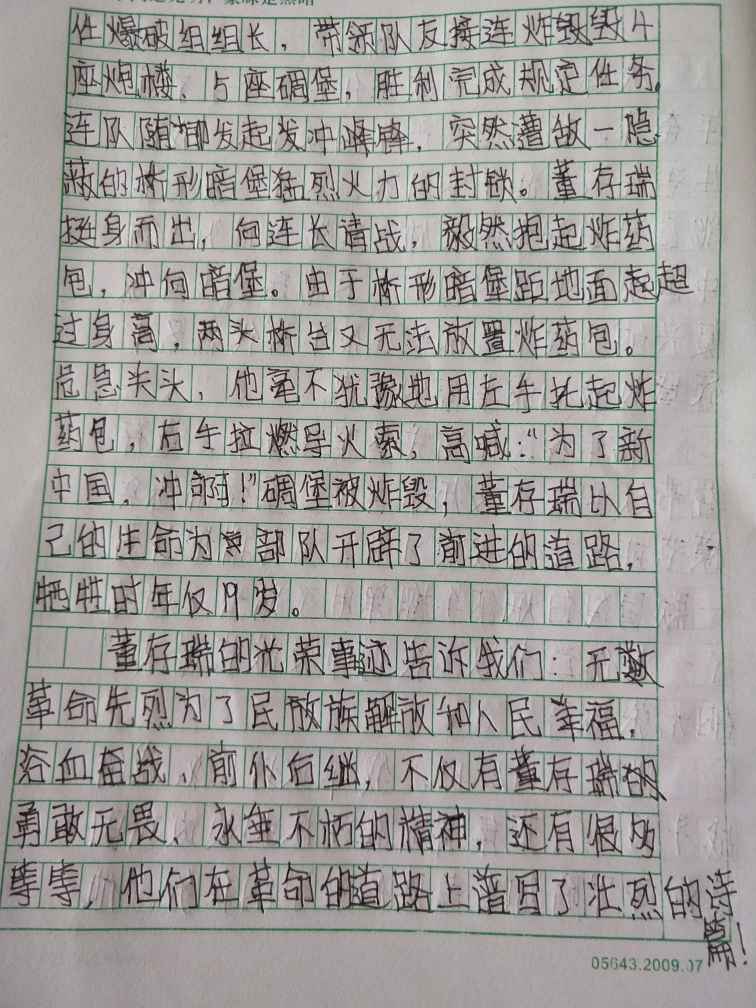 任爆破组组长，带领队友接连炸毁毁4
座炮楼、5座碉堡，胜利完成规定任务。
连队随即发起发冲峰锋，突然遭敌一隐
蔽的桥形暗堡猛烈火力的封锁。董存瑞
挺身而出，向连长请战，毅然抱起炸药
包，冲向暗堡。由于桥形暗堡距地面起超
过身高，两头桥台又无法放置炸药包。
危急关头，他毫不犹豫地用左手托起炸
药包，右手拉燃导火索，高喊：“为了新
中国，冲啊！”碉堡被炸毁，董存瑞以自
己的生命为部队开辟了前进的道路，
牺牲时年仅19岁。
董存瑞的光荣事迹告诉我们：无数
革命先烈为了民放族解放和人民幸福，
浴血奋战、前仆后继，不仅有董存瑞的
勇敢无畏、永垂不朽的精神，还有很多
等等，他们在革命的道路上谱写了壮烈的诗
篇！
05643.2009.07